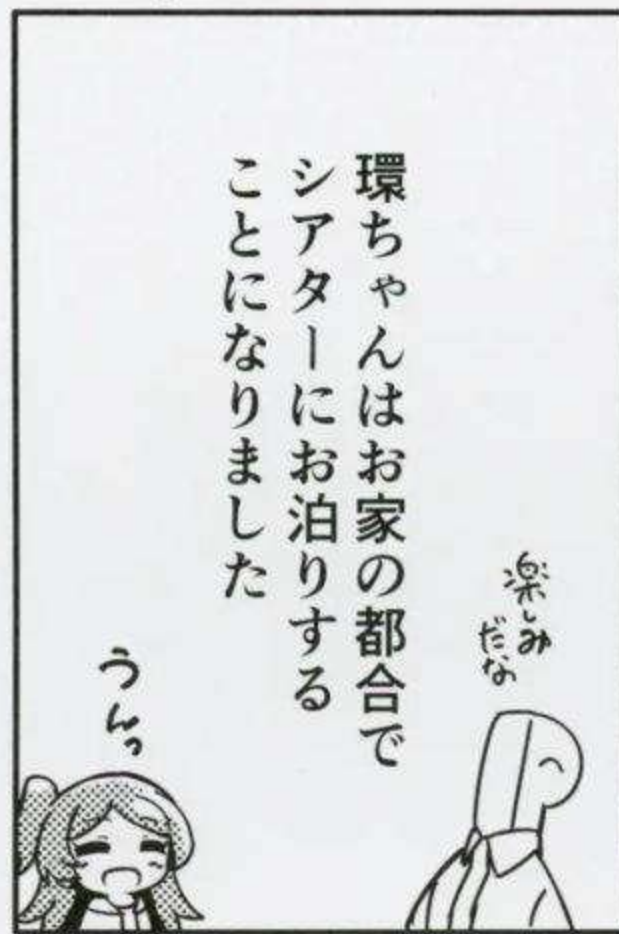 環ちゃんはお家の都合で
シアターにお泊りする
ことになりました
楽しみ
だな
うんっ